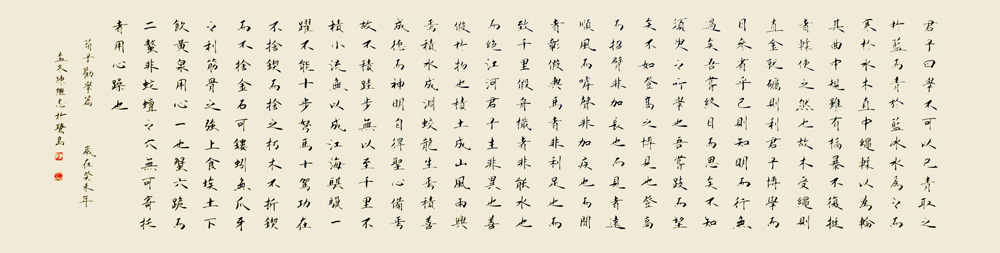 君子曰學不可以已青取之
於藍而青於藍冰水為之而
寒於水木直中繩輮以為輪
其曲中規雖有槁暴不復挺
者輮使之然也故木受繩則
直金就礪則利君子博學而
日參省乎己則知明而行無
過矣吾嘗終日而思矣不如
須臾之所學也吾嘗跂而望
矣不如登高之博見也登高
而招臂非加長也而見者遠
順風而呼聲非加疾也而聞
者彰假輿馬者非利足也而
致千里假舟檝者非能水也
而絕江河君子生非異也善
假於物也積土成山風雨興
焉積水成淵蛟龍生焉積善
成德而神明自得聖心備焉
故不積跬步無以至千里不
積小流無以成江海騏驥一
躍不能十步駑馬十駕功在
不捨鍥而捨之朽木不折鍥
而不捨金石可鏤螾無爪牙
之利筋骨之強上食埃土下
飲黃泉用心一也蟹六跪而
二螯非蛇蟺之穴無可寄託
者用心躁也
荀子勸學篇 歲在癸未年